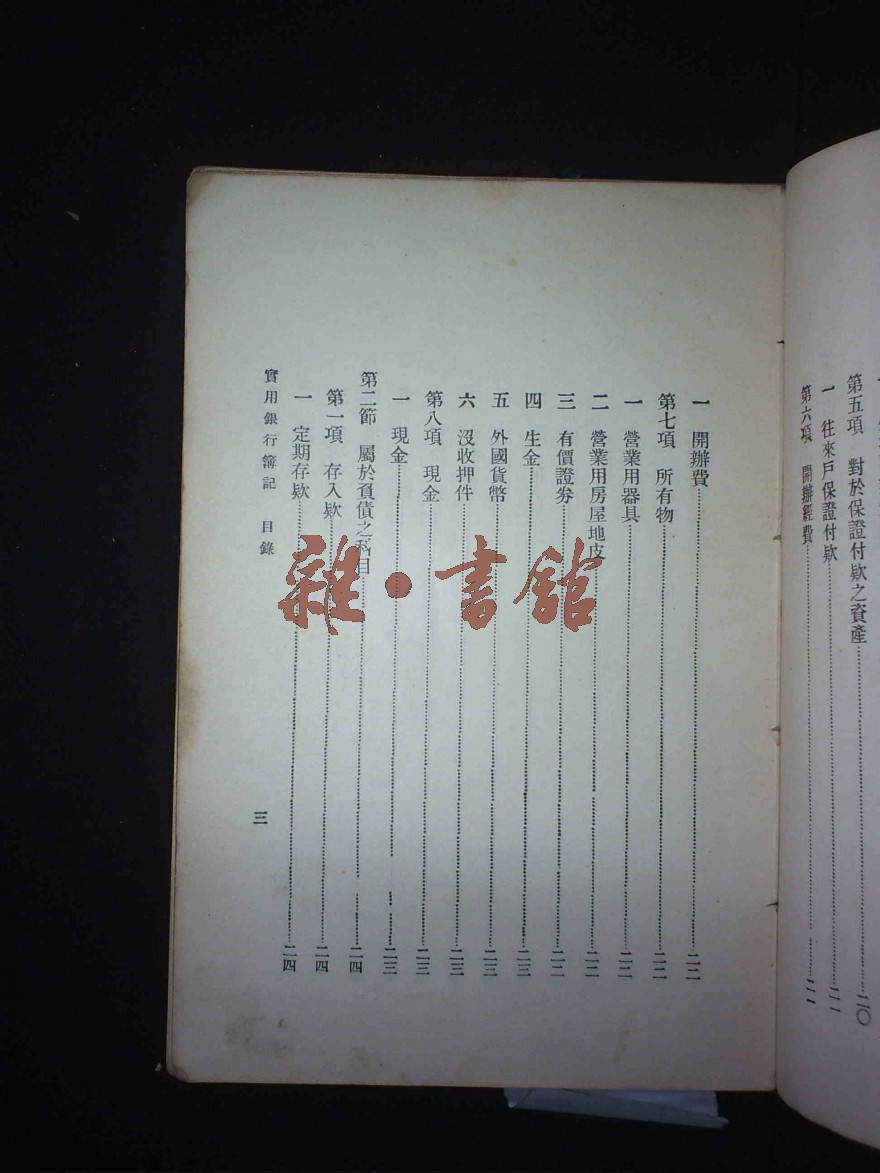 第五項　對於保證付欵之資產……二〇
一　往來戶保證付欵……二一
第六項　開辦經費……二一
一　開辦費……二二
第七項　所有物……二二
一　營業用器具……二二
二　營業用房屋地皮……二二
三　有價證券……二二
四　生金……二三
五　外國貨幣……二三
六　沒收押件……二三
第八項　現金……二三
一　現金……二三
第二節　屬於負債之科目……二四
第一項　存入欵……二四
一　定期存欵……二四
實用銀行簿記　目錄
三
雜·書館